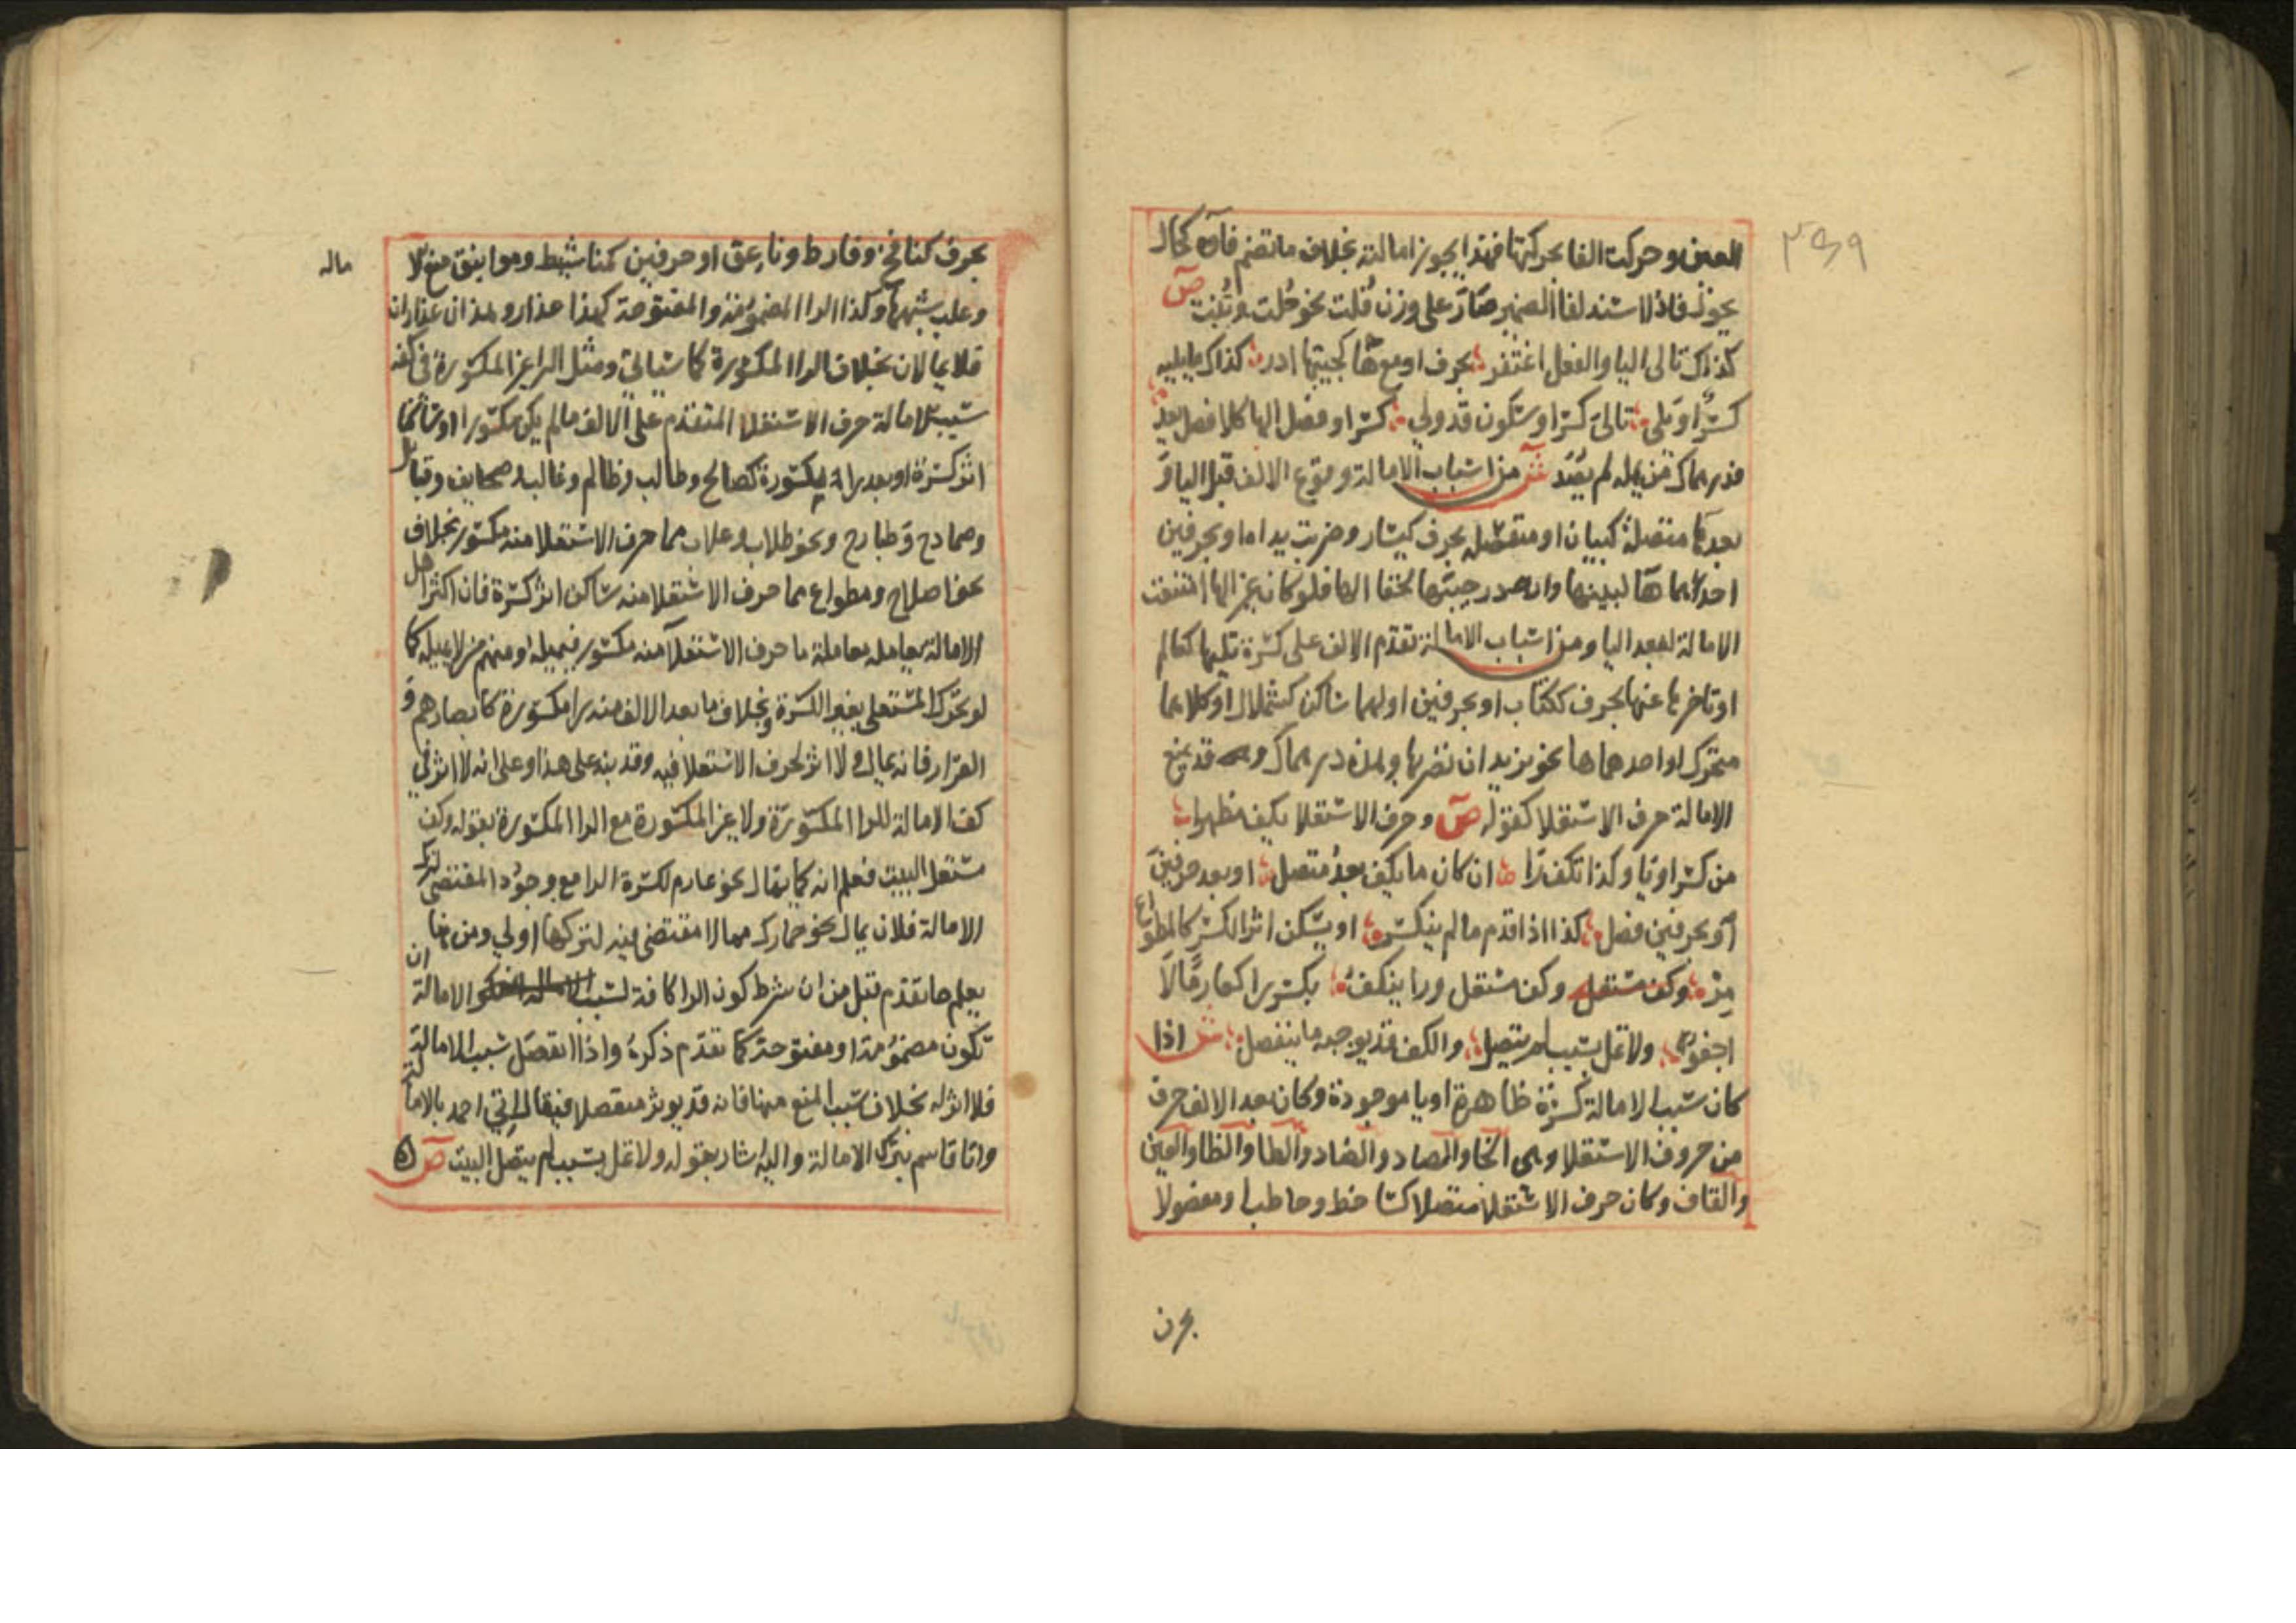 العين وحركت الفا بحركتها فهذا يجوز امالته بخلاف ما تضم فاؤه كحال
يحول فاذا اسند لفا الضمير صار على وزن فلت نحو حلت وتبت ص
كذاك تالى اليا والفصل اغتفر بحرف او مع ها كجيبها ادر كذاك ما يليه
كسر او يلى تالى كسر او سكون قد ولي كسرا وفصل الها كلا فصل يعد
فدرهماك من يمله لم يصد ش من اسباب الامالة وقوع الالف قبل اليا و
بعدها متصلة كبيان او منفصلة بحرف كيسار وضربت يداها وبحرفين
احدهما ها لبينها وادر جيبها لخفا الها فلو كان غير الها امتنعت
الامالة لبعد اليا ومن اسباب الامالة تقدم الالف على كسرة تليها كعالم
او تاخرها عنها بحرف ككتاب او بحرفين اولهما ساكن كشملال او كلاهما
متحرك او احدهما ها نحو يريد ان يضربها وهذه درهماك وقد يمنع
الامالة حرف الاستعلا كقوله ص وحرف الاستعلا يكف مظهرا
من كسر او يا وكذا تكف را ان كان ما يكف بعد متصل او بعد حرف
او بحرفين فصل كذا اذا قدم ما لم ينكسر او يسكن اثر الكسر كالمطواع
مر وكف مستعل وكف مستعل ورا ينكف بكسر را كغارما لا
اجفو ولا تمل بسبب لم يتصل والكف قد يوجبه ما ينفصل ش اذا
كان سبب الامالة كسرة ظاهرة او يا موجودة وكان بعد الالف حرف
من حروف الاستعلا وهى الخا والصاد والضاد والطا والظا والغين
والقاف وكان حرف الاستعلا متصلا كساخط وحاطب او مفصولا
بحرف
بحرف كنافخ وفارط وناعق او حرفين كمناشيط ومواثيق منع الا
ماله
وغلب سببها وكذا الرا المضمومة والمفتوحة كهذا عذار وهذان عذاران
فلا يمالان بخلاف الرا المكسورة كما سياتي ومثل الرا غير المكسورة في كفه
سبب الامالة حرف الاستعلا المتقدم على الالف ما لم يكن مكسورا او ساكنا
اثر كسرة او بعد راء مكسورة كصالح وطالب وظالم وغالب وصحايف وقبايل
وصمادح وطبارح ونحو طلاب وغلاب مما حرف الاستعلا منه مكسور بخلاف
نحو اصلاح ومطواع مما حرف الاستعلا منه ساكن اثر كسرة فان اكثر اهل
الامالة يعامله معاملة ما حرف الاستعلا منه مكسور فيميله ومنهم من لا يميله كما
لو تحرك المستعلى بغير الكسرة وبخلاف ما بعد الالف منه را مكسورة كابصارهم و
القرار فانه يمال ولا اثر لحرف الاستعلا فيه وقد نبه على هذا وعلى انه لا اثر في
كف الامالة للرا المكسورة ولا غير المكسورة مع الرا المكسورة بقوله وكف
مستعل البيت فعلم انه كما يمال نحو غارم لكسرة الرا مع وجود المقتضى لترك
الامالة فلان يمال نحو حمارك مما لا مقتضى فيه لتركها اولى ومن هنا
يعلم ما تقدم قبل من ان شرط كون الرا كافة لسبب الامالة ان
تكون مضمومة او مفتوحة كما تقدم ذكره واذا انفصل سبب الامالة
فلا اثر له بخلاف سبب المنع منها فانه قد يوثر منفصلا فيقال اتى احمد بالامالة
واتا قاسم بترك الامالة واليه اشار بقوله ولا تمل بسبب لم يتصل البيت ص